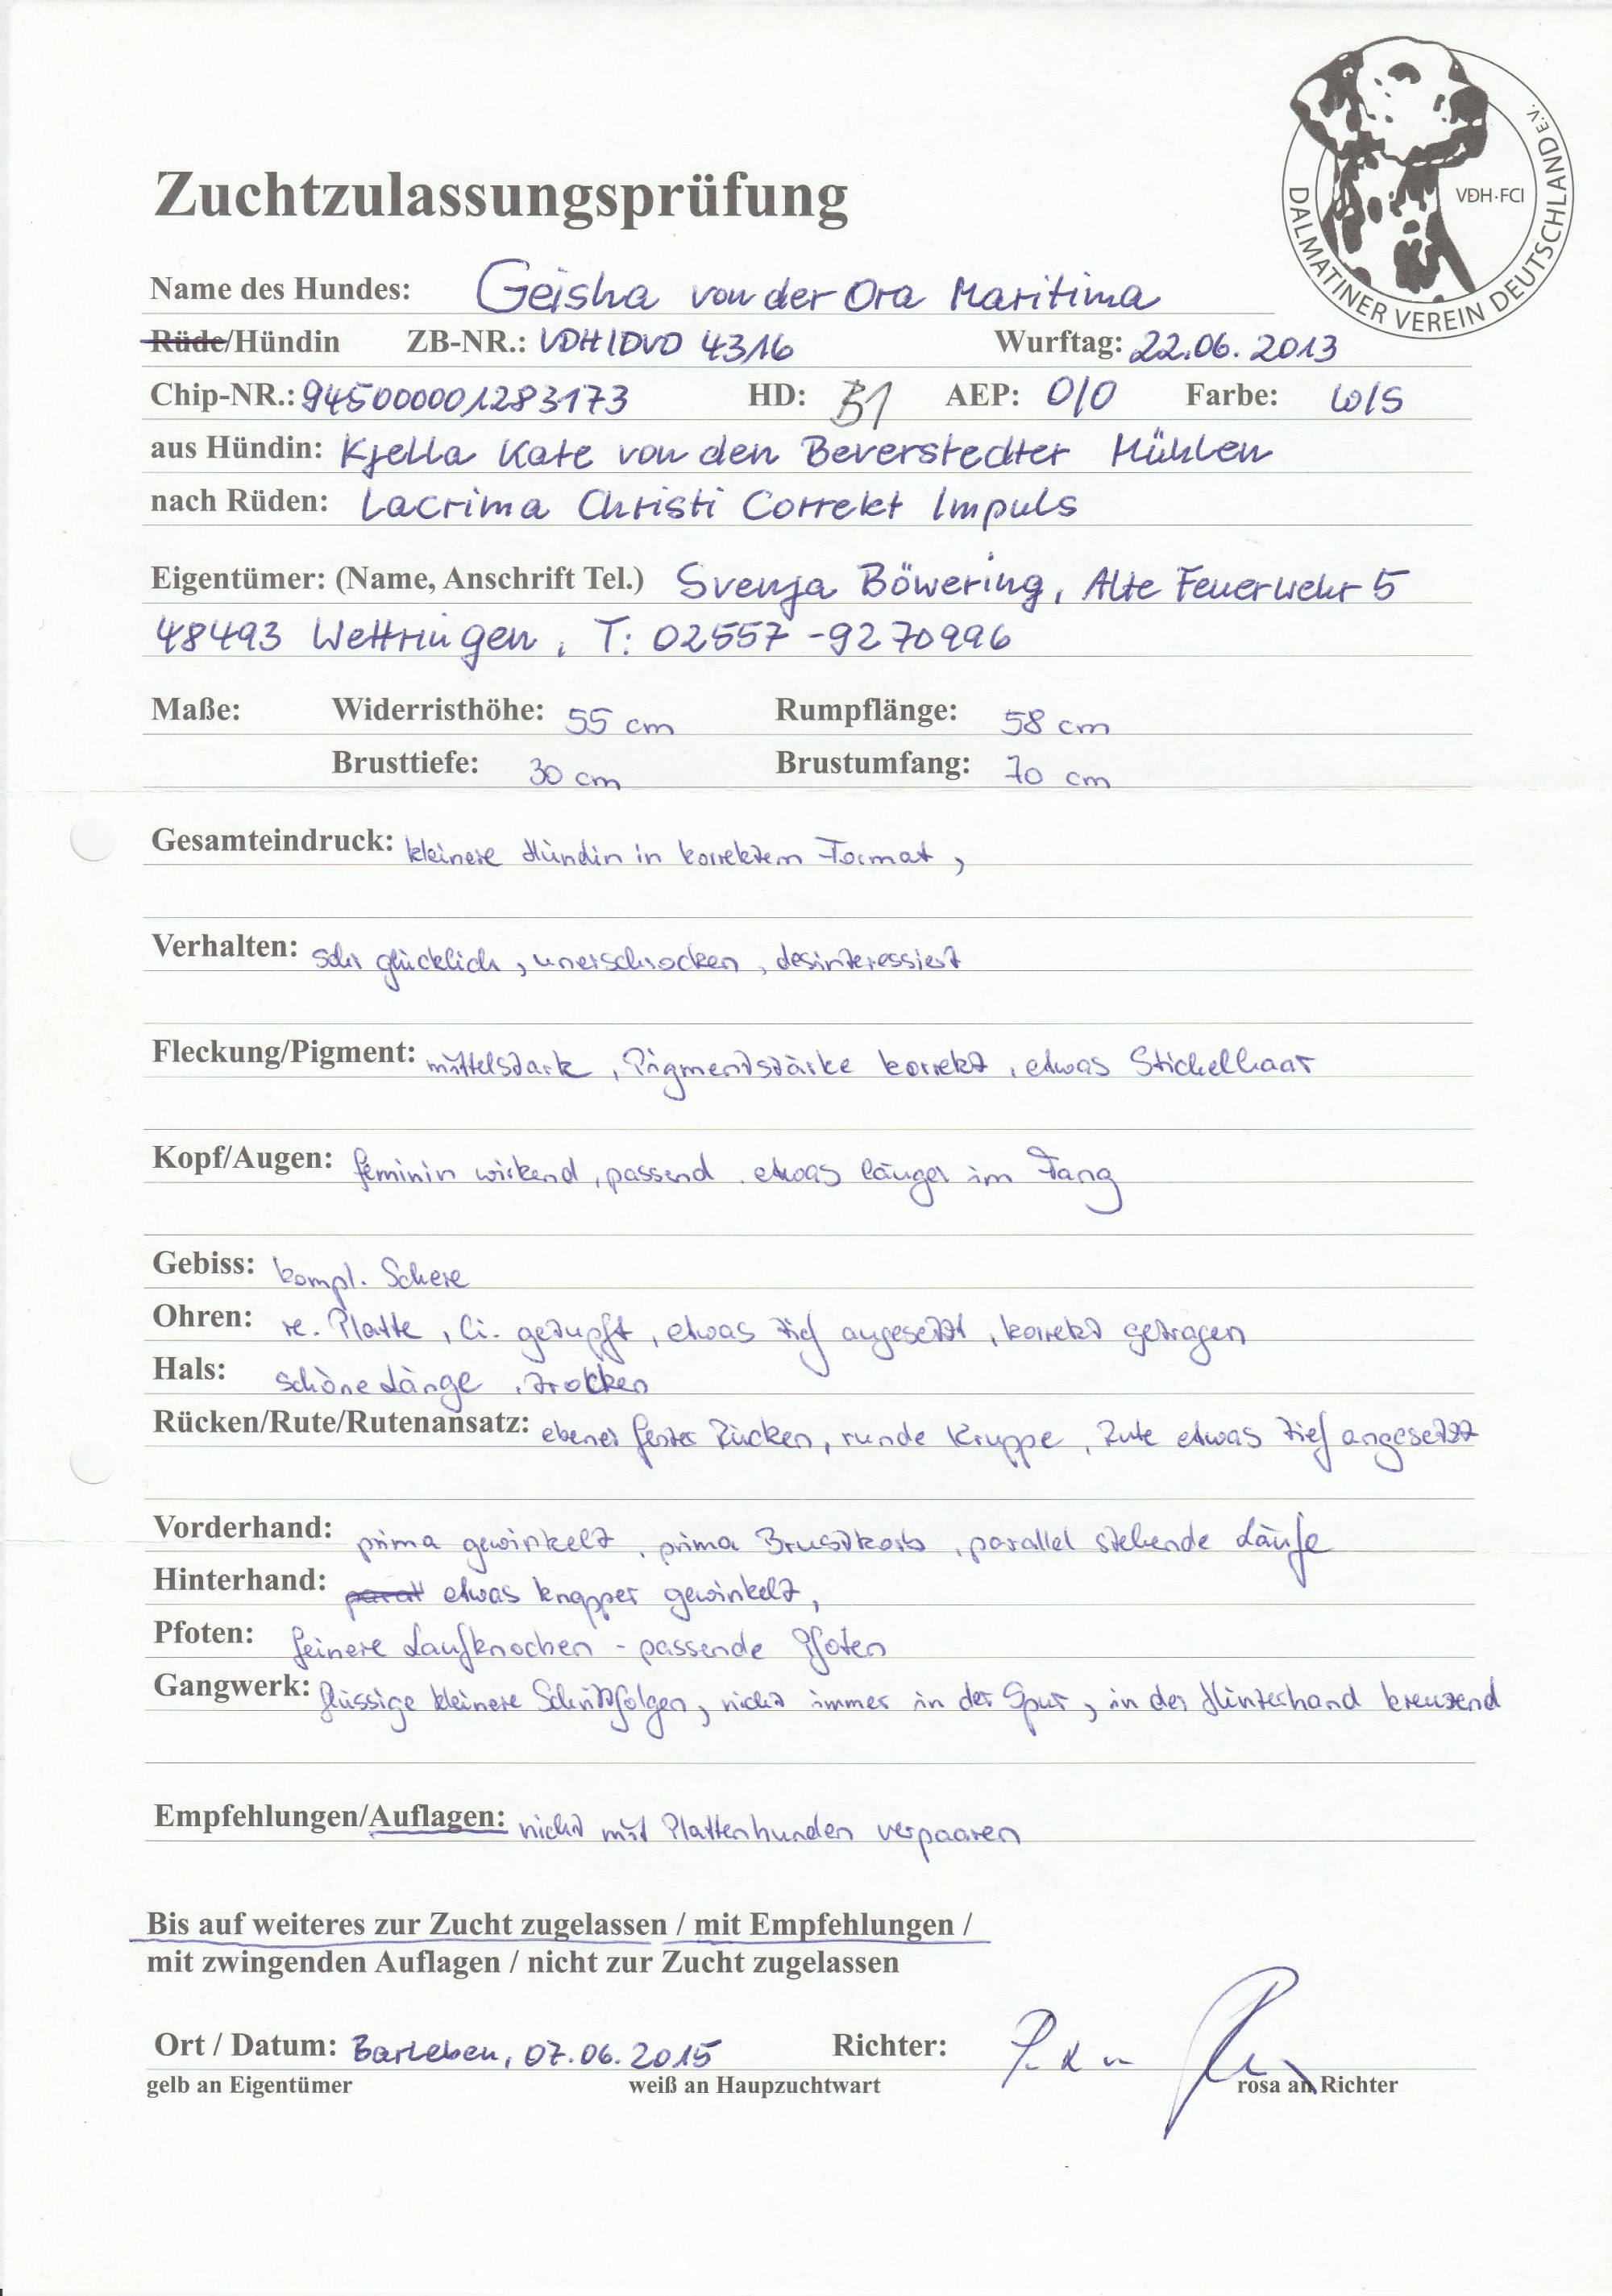 DALMATINER VEREIN DEUTSCHLAND E.V.
VDH·FCI
Zuchtzulassungsprüfung
Name des Hundes: Geisha von der Ora Maritima
Rüde/Hündin ZB-NR.: VDH/DVD 4316 Wurftag: 22.06.2013
Chip-NR.: 945000001283173 HD: B1 AEP: 0/0 Farbe: w/s
aus Hündin: Kjella Kate von den Beverstedter Mühlen
nach Rüden: Lacrima Christi Correkt Impuls
Eigentümer: (Name, Anschrift Tel.) Svenja Böwering, Alte Feuerwehr 5
48493 Wettringen, T: 02557-9270996
Maße: Widerristhöhe: 55 cm Rumpflänge: 58 cm
Brusttiefe: 30 cm Brustumfang: 70 cm
Gesamteindruck: kleinere Hündin in korrektem Format,
Verhalten: sehr glücklich, unerschrocken, desinteressiert
Fleckung/Pigment: mittelstark, Pigmentstärke korrekt, etwas Stichelhaar
Kopf/Augen: feminin wirkend, passend, etwas länger im Fang
Gebiss: kompl. Schere
Ohren: re. Platte, li. getupft, etwas tief angesetzt, korrekt getragen
Hals: schöne Länge, trocken
Rücken/Rute/Rutenansatz: ebener fester Rücken, runde Kruppe, Rute etwas tief angesetzt
Vorderhand: prima gewinkelt, prima Brustkorb, parallel stehende Läufe
Hinterhand: etwas knapper gewinkelt,
Pfoten: feinere Laufknochen - passende Pfoten
Gangwerk: flüssige kleinere Schrittfolgen, nicht immer in der Spur, in der Hinterhand kreuzend
Empfehlungen/Auflagen: nicht mit Plattenhunden verpaaren
Bis auf weiteres zur Zucht zugelassen / mit Empfehlungen /
mit zwingenden Auflagen / nicht zur Zucht zugelassen
Ort / Datum: Barleben, 07.06.2015 Richter:
gelb an Eigentümer weiß an Haupzuchtwart rosa an Richter